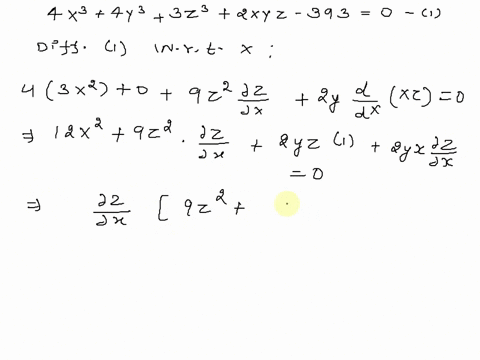 4x³ + 4y³ + 3z³ + 2xyz - 393 = 0 - (1)
Diff. (1) w.r.t. x :
4(3x²) + 0 + 9z² ∂z/∂x + 2y d/dx (xz) = 0
⇒ 12x² + 9z² · ∂z/∂x + 2yz (1) + 2yx ∂z/∂x
= 0
⇒ ∂z/∂x [ 9z² +